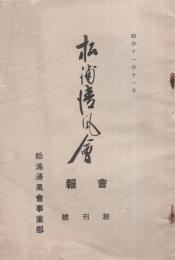 昭和十一年十一月
松浦清風會
會報
創刊號
松浦清風會事業部